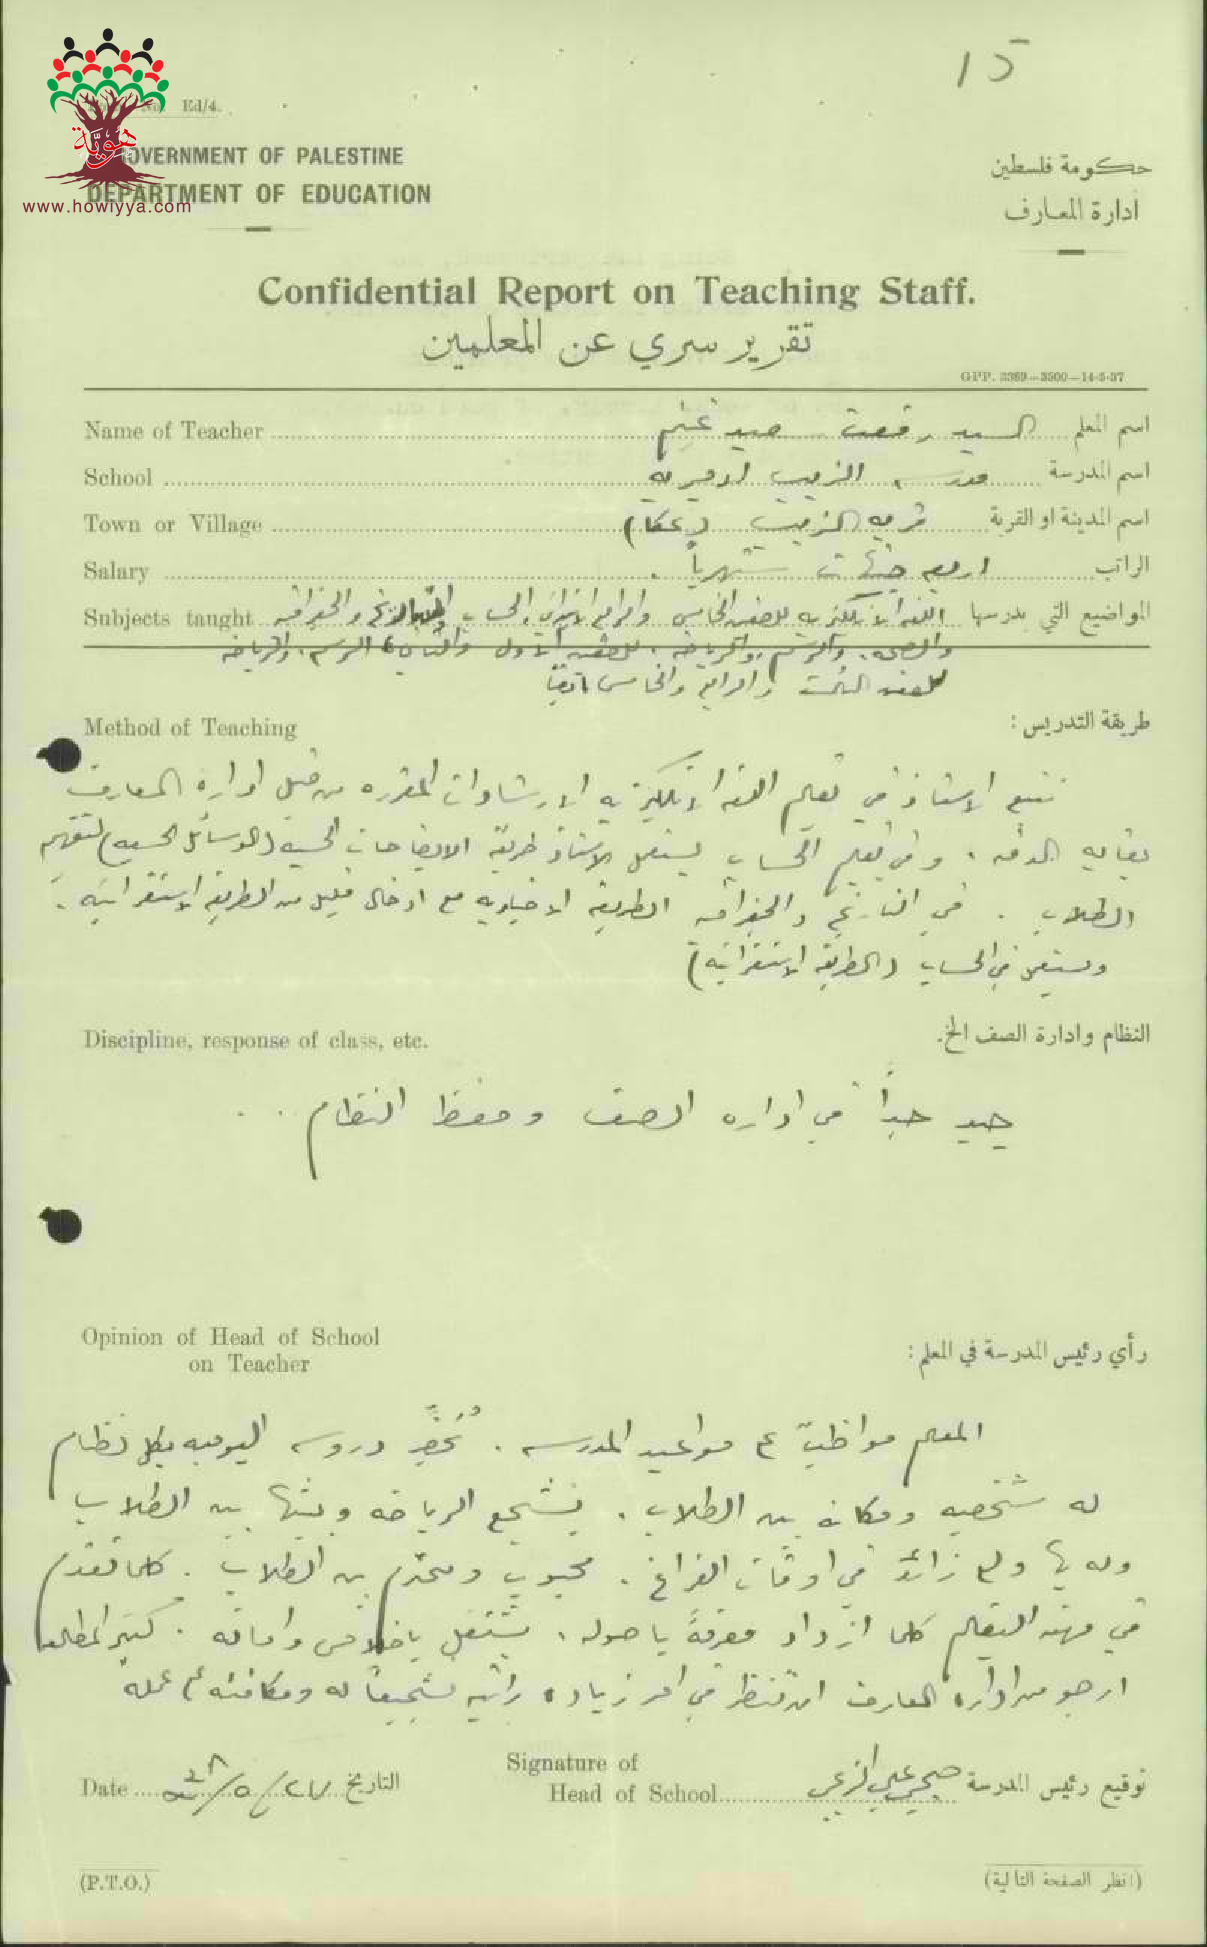 15
Form No. Ed/4.
هويّة
www.howiyya.com
GOVERNMENT OF PALESTINE
DEPARTMENT OF EDUCATION
حكومة فلسطين
ادارة المعارف
Confidential Report on Teaching Staff.
تقرير سري عن المعلمين
GPP. 3369—3500—14-5-37
Name of Teacher السيد رفعت صيد غنيم اسم المعلم
School مدرسة الزيب الاميرية اسم المدرسة
Town or Village قرية الزيب (عكا) اسم المدينة او القرية
Salary اربعة جنيهات شهرياً . الراتب
Subjects taught اللغه الانكليزيه للصف الخامس والرابع الحساب والتاريخ والجغرافيه المواضيع التي يدرسها
والصحه. والرسم والرياضه. للصف الاول والثاني الرسم. والرياضه
للصف الثالث والرابع والخامس
Method of Teaching طريقة التدريس :
تتبع الاستاذ في تعليم اللغه الانكليزيه الارشادات المقرره من قبل ادارة المعارف
بغايه الدقه . وفي تعليم الحساب يستعمل الاستاذ طريقة الايضاحات الحسيه (الوسائل الحسيه) لتفهيم
الطلاب . في التاريخ والجغرافيه الطريقه الاخباريه مع ادخال قليل من الطريقه الاستقرائيه .
ويستعمل في الحساب (الطريقه الاستقرائيه)
Discipline, response of class, etc. النظام وادارة الصف الخ.
جيد جداً في اداره الصف وحفظ النظام . .
Opinion of Head of School
on Teacher
رأي رئيس المدرسة في المعلم :
المعلم مواظب على مواعيد المدرسه . يُحضِّر دروسه اليوميه بكل نظام
له شخصيه ومكانه بين الطلاب . يشجع الرياضه ويبثها بين الطلاب
وله بها ولع زائد في اوقات الفراغ . محبوب ومحترم بين الطلاب . كلما تقدم
في مهنه التعليم كلما ازداد معرفةً باصوله . يشتغل باخلاص وامانه . كثير المطالعه
ارجو من اداره المعارف ان تنظر في امر زياده راتبه تشجيعاً له ومكافئه على عمله
Date ٢٧/٥/٣٨ التاريخ
Signature of
Head of School صبحي علي الزعبي توقيع رئيس المدرسة
(P.T.O.) (انظر الصفحة التالية)